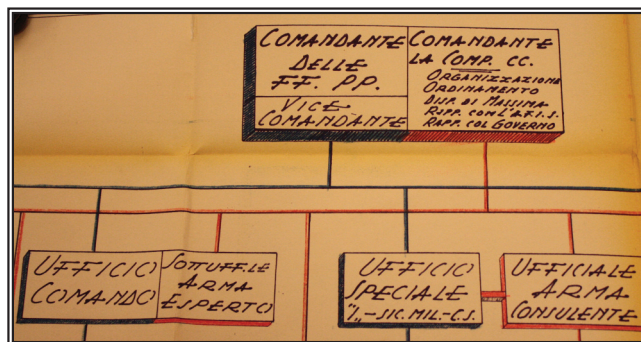 COMANDANTE
DELLE
FF. PP.
VICE
COMANDANTE
COMANDANTE
LA COMP. CC.
ORGANIZZAZIONE
ORDINAMENTO
DISP. DI MASSIMA
RAPP. CON L'A.F.I.S.
RAPP. COL GOVERNO
UFFICIO
COMANDO
SOTTUFF.LE
ARMA
ESPERTO
UFFICIO
SPECIALE
"I"-SIC. MIL.-C.S.
UFFICIALE
ARMA
CONSULENTE